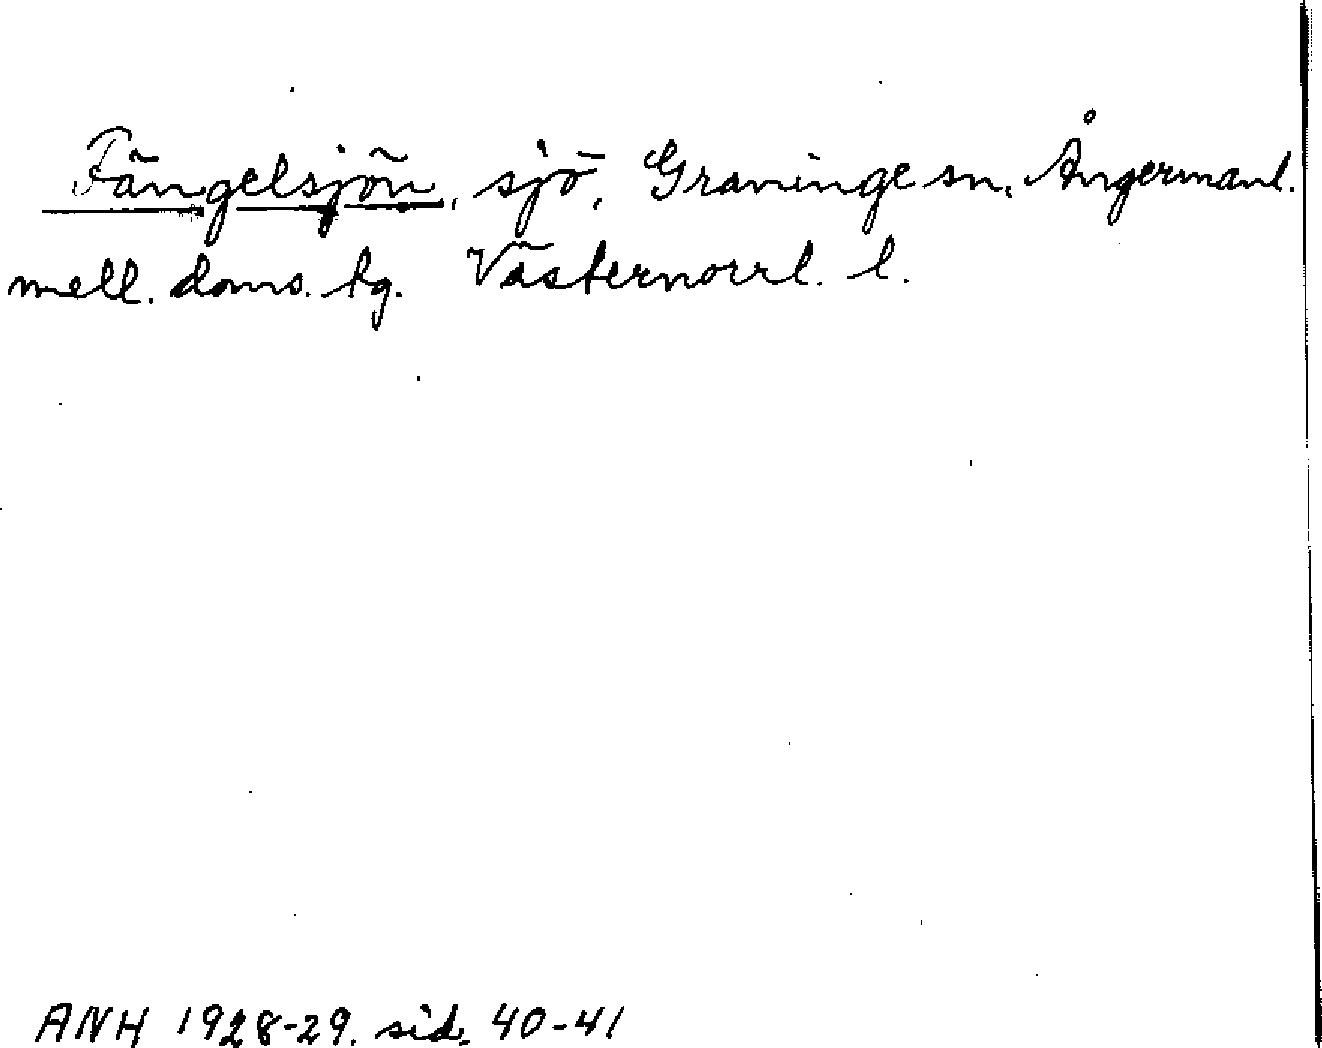 Fängelsjön, sjö, Graninge sn, Ångermanl.
mell. doms. tg. Västernorrl. l.
ANH 1928-29. sid. 40-41